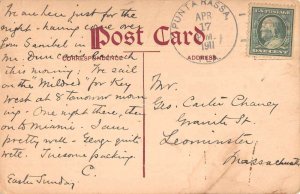 We are here just for the
night - having come over
from Sanibel in the
this morning. We sail
on the "Mildred" for Key
West at 8 tomorrow morn-
ing. One night there, then
on to Miami. I am
pretty well - Geo. quite
well. Tiresome packing.
C.
Easter Sunday
Post Card
CORRESPONDENCE
ADDRESS
PUNTA RASSA
APR
17
1911
ONE CENT
Mr.
Geo. Carter Chaney
Granite St.
Leominster
Massachusetts